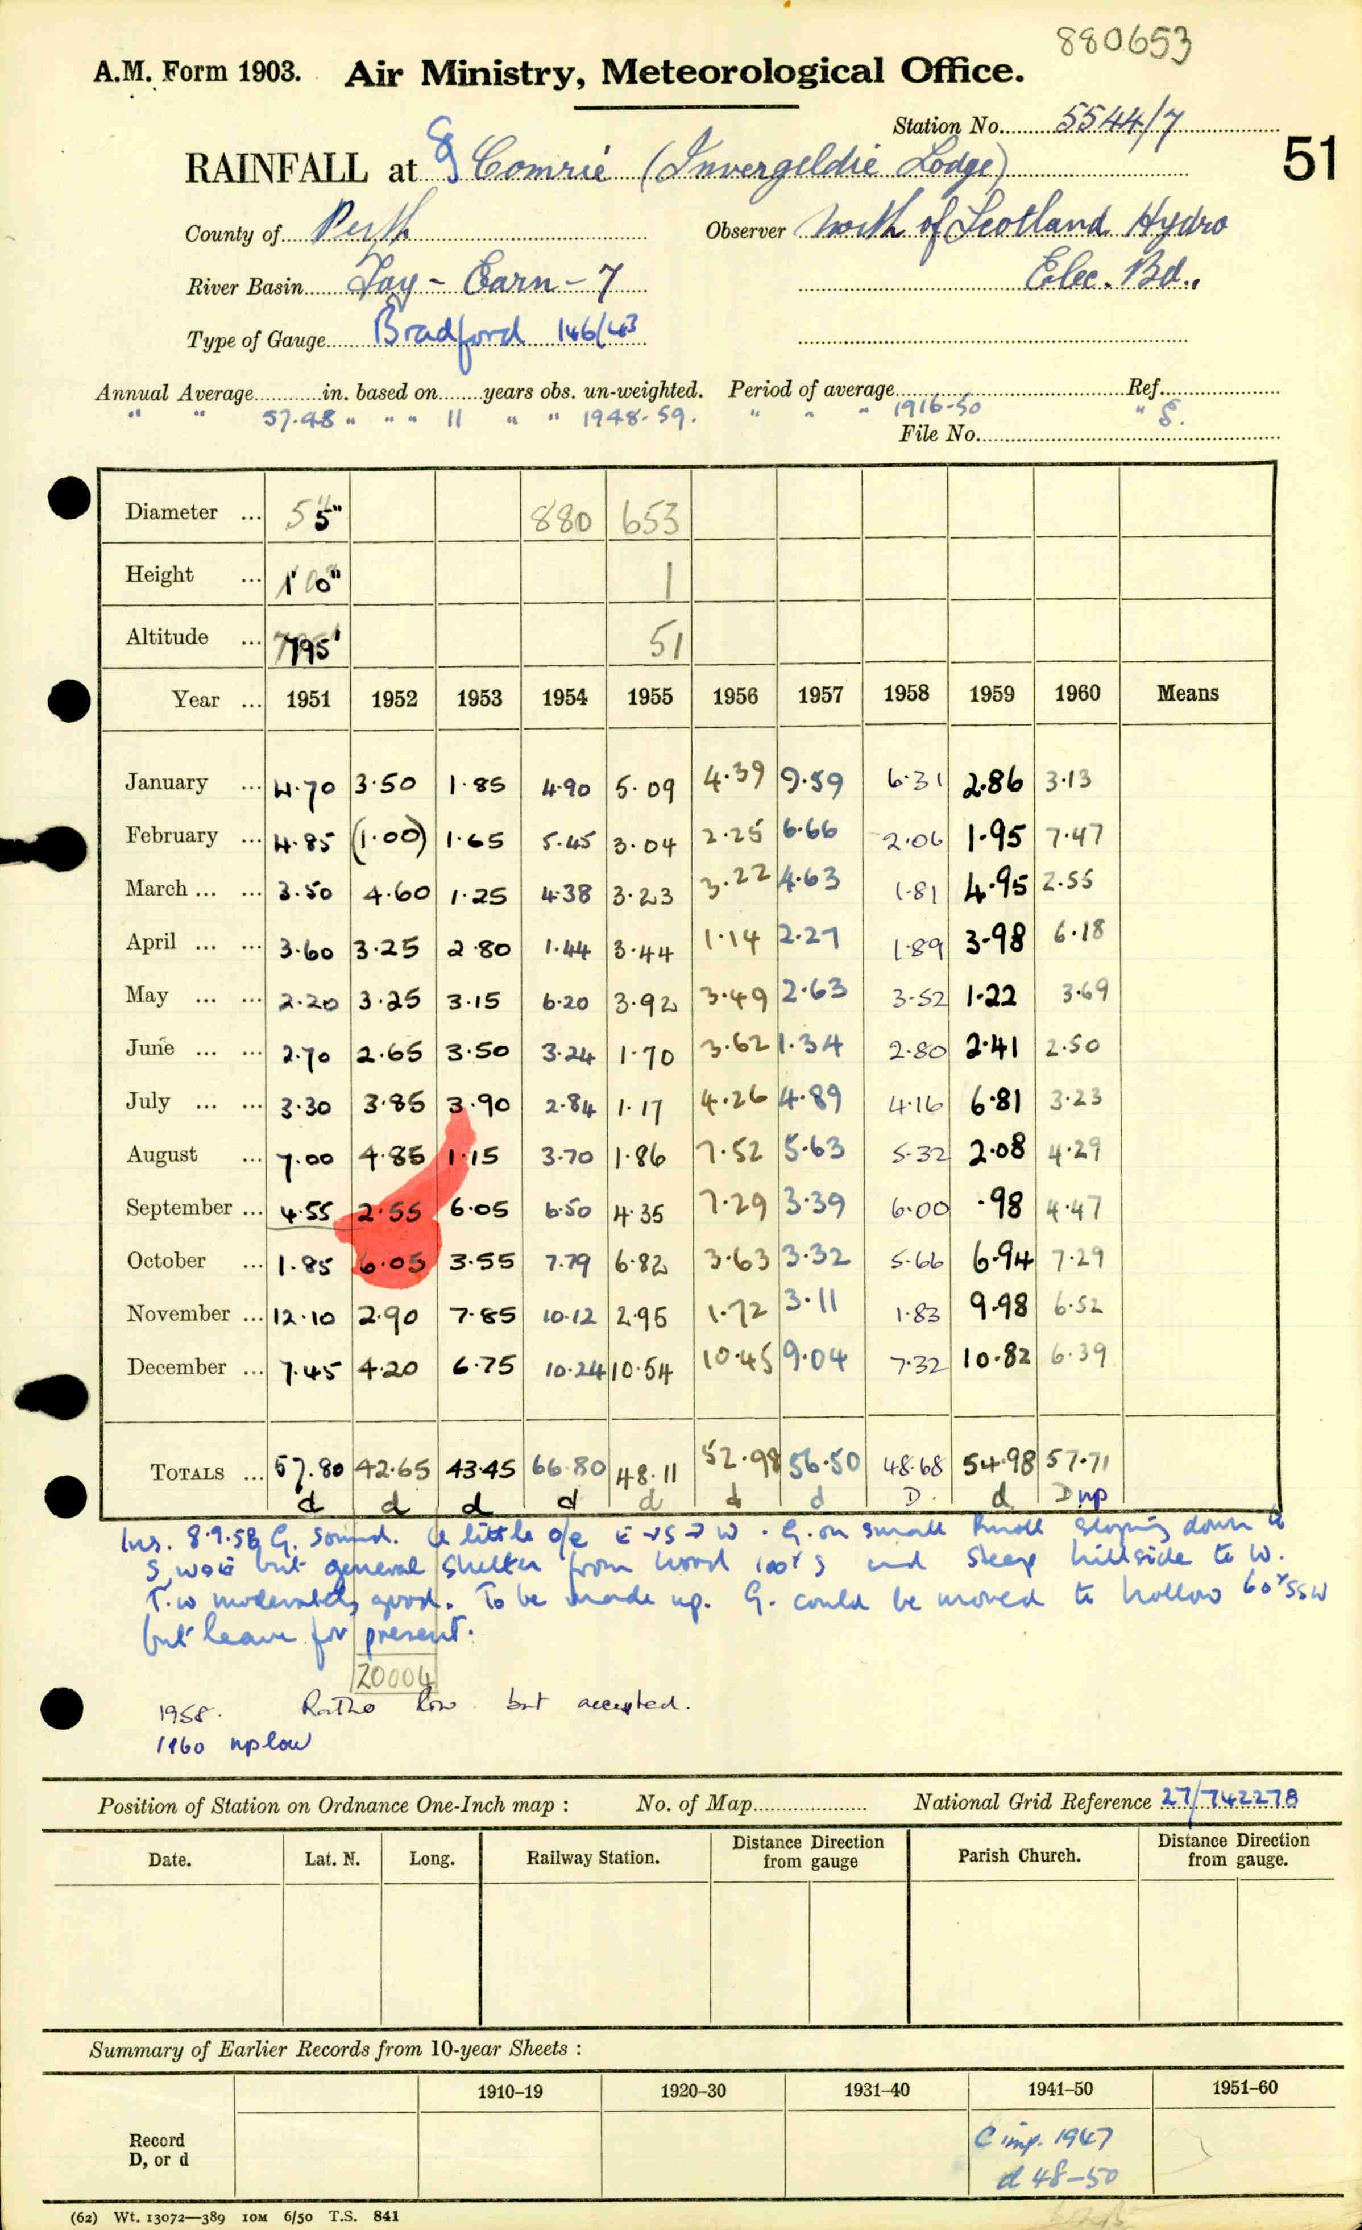 880653
A.M. Form 1903. Air Ministry, Meteorological Office.
Station No. 5544/7
51
RAINFALL at Comrie (Invergeldie Lodge)
County of Perth Observer North of Scotland Hydro
River Basin Tay - Earn - 7 Elec. Bd.,
Type of Gauge Bradford 146/43
Annual Average in. based on years obs. un-weighted. Period of average Ref.
" " 57.48 " " " 11 " " 1948-59. " " " 1916-50 " S.
File No.
Diameter ... 5" 5" 880 653
Height ... 1' 0" 1
Altitude ... 795' 51
Year ... 1951 1952 1953 1954 1955 1956 1957 1958 1959 1960 Means
January ... 4.70 3.50 1.85 4.90 5.09 4.39 9.59 6.31 2.86 3.13
February ... 4.85 (1.00) 1.65 5.45 3.04 2.25 6.66 2.06 1.95 7.47
March ... ... 3.50 4.60 1.25 4.38 3.23 3.22 4.63 1.81 4.95 2.55
April ... ... 3.60 3.25 2.80 1.44 3.44 1.14 2.27 1.89 3.98 6.18
May ... ... 2.20 3.25 3.15 6.20 3.92 3.49 2.63 3.52 1.22 3.69
June ... ... 2.70 2.65 3.50 3.24 1.70 3.62 1.34 2.80 2.41 2.50
July ... ... 3.30 3.85 3.90 2.84 1.17 4.26 4.89 4.16 6.81 3.23
August ... 7.00 4.85 1.15 3.70 1.86 7.52 5.63 5.32 2.08 4.29
September ... 4.55 2.55 6.05 6.50 4.35 7.29 3.39 6.00 .98 4.47
October ... 1.85 6.05 3.55 7.79 6.82 3.63 3.32 5.66 6.94 7.29
November ... 12.10 2.90 7.85 10.12 2.95 1.72 3.11 1.83 9.98 6.52
December ... 7.45 4.20 6.75 10.24 10.54 10.45 9.04 7.32 10.82 6.39
TOTALS ... 57.80 42.65 43.45 66.80 48.11 52.98 56.50 48.68 54.98 57.71
d d d d d d d D. d D np
Ins. 8.9.58 G. sound. A little o/e E → S → W. G. on small knoll sloping down to
S, W & E but general shelter from wood 100' S and steep hillside to W.
T.w moderately good. To be made up. G. could be moved to hollow 60' SSW
but leave for present.
20004
1958. Ratho low but accepted.
1960 np low
Position of Station on Ordnance One-Inch map : No. of Map National Grid Reference 27/742278
Date. Lat. N. Long. Railway Station. Distance Direction from gauge Parish Church. Distance Direction from gauge.
Summary of Earlier Records from 10-year Sheets :
1910–19 1920–30 1931–40 1941–50 1951–60
Record
D, or d
C imp. 1947
d 48-50
(62) Wt. 13072—389 10M 6/50 T.S. 841